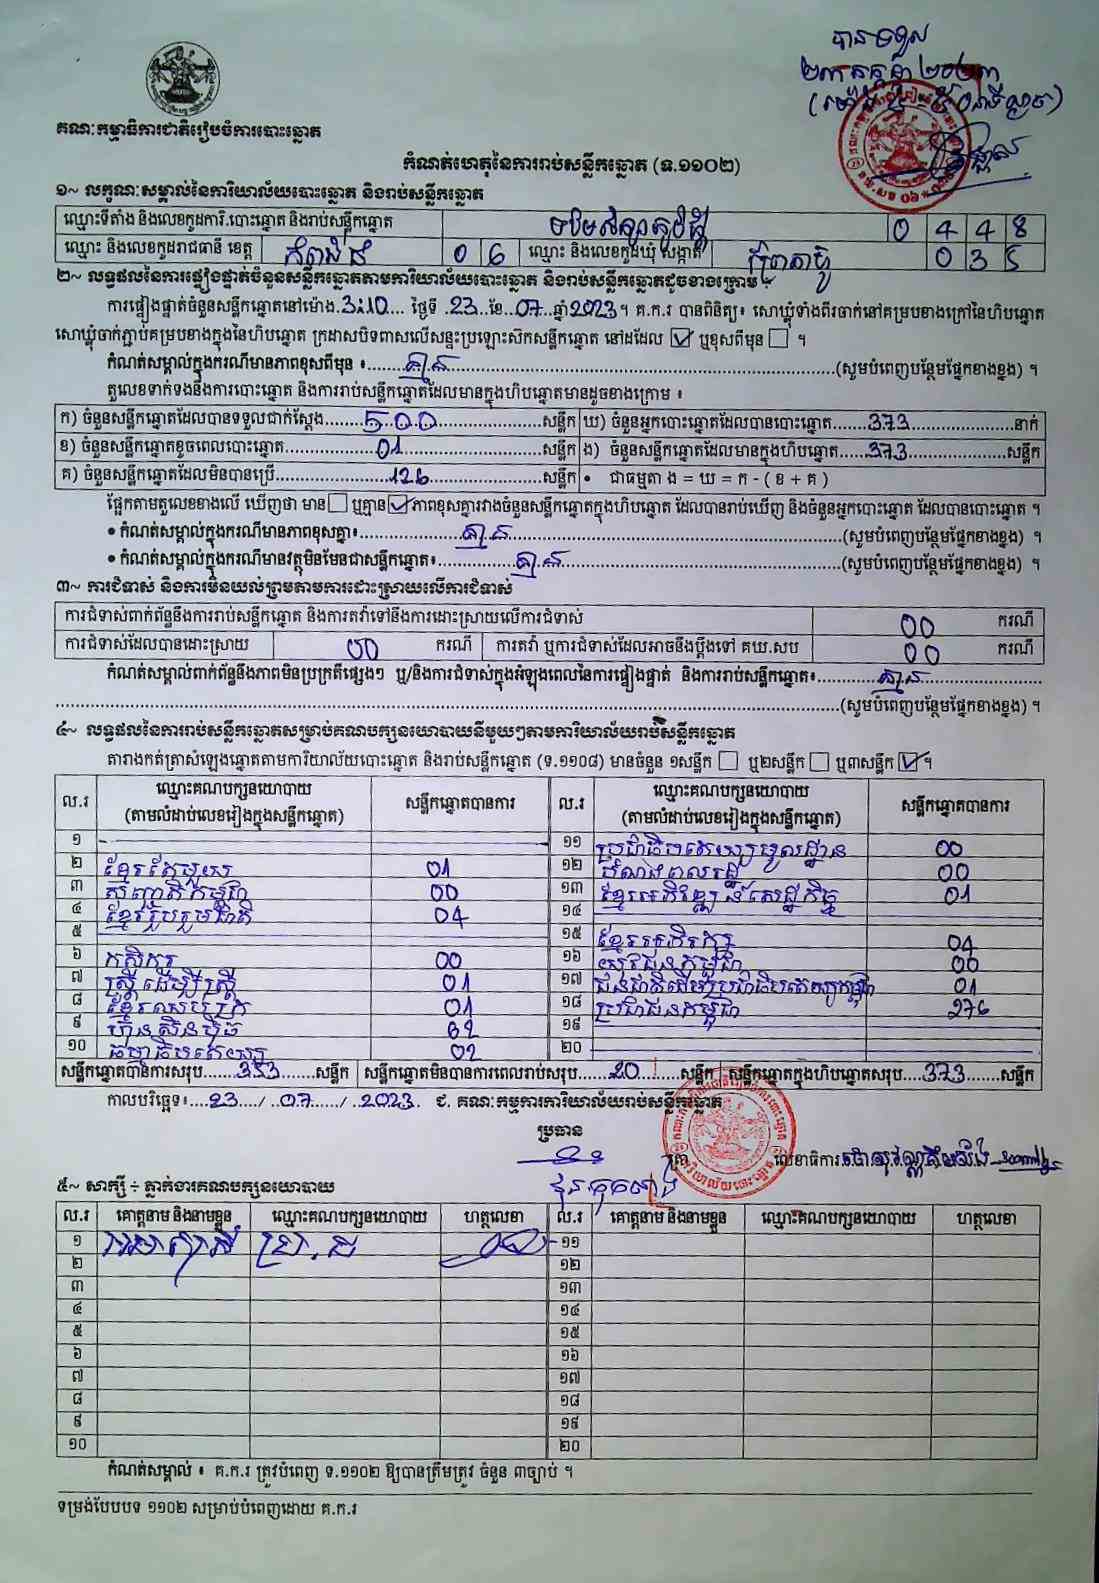 បានទទួល
គណៈកម្មាធិការជាតិរៀបចំការបោះឆ្នោត
កំណត់ហេតុនៃការរាប់សន្លឹកឆ្នោត (ទ.១១០២)
១~ លក្ខណៈសម្គាល់នៃការិយាល័យបោះឆ្នោត និងរាប់សន្លឹកឆ្នោត
ឈ្មោះទីតាំង និងលេខកូដការិ.បោះឆ្នោត និងរាប់សន្លឹកឆ្នោត 0 4 4 8
ឈ្មោះ និងលេខកូដរាជធានី ខេត្ត កំពង់ធំ 0 6 ឈ្មោះ និងលេខកូដឃុំ សង្កាត់ 0 3 5
២~ លទ្ធផលនៃការផ្ទៀងផ្ទាត់ចំនួនសន្លឹកឆ្នោតតាមការិយាល័យបោះឆ្នោត និងរាប់សន្លឹកឆ្នោតដូចខាងក្រោម ÷
ការផ្ទៀងផ្ទាត់ចំនួនសន្លឹកឆ្នោតនៅម៉ោង.3:10.... ថ្ងៃទី .23...ខែ.07...ឆ្នាំ2023។ គ.ក.រ បានពិនិត្យ៖ សោឃ្លុំទាំងពីរចាក់នៅគម្របខាងក្រៅនៃហិបឆ្នោត
សោឃ្លុំចាក់ភ្ជាប់គម្របខាងក្នុងនៃហិបឆ្នោត ក្រដាសបិទពាសលើសន្ទះប្រឡោះស៊កសន្លឹកឆ្នោត នៅដដែល ☑ ឬខុសពីមុន ☐ ។
កំណត់សម្គាល់ក្នុងករណីមានភាពខុសពីមុន ៖ គ្មាន (សូមបំពេញបន្ថែមផ្នែកខាងខ្នង) ។
តួលេខទាក់ទងនឹងការបោះឆ្នោត និងការរាប់សន្លឹកឆ្នោតដែលមានក្នុងហិបឆ្នោតមានដូចខាងក្រោម ៖
ក) ចំនួនសន្លឹកឆ្នោតដែលបានទទួលជាក់ស្តែង 500 សន្លឹក ឃ) ចំនួនអ្នកបោះឆ្នោតដែលបានបោះឆ្នោត 373 នាក់
ខ) ចំនួនសន្លឹកឆ្នោតខូចពេលបោះឆ្នោត 01 សន្លឹក ង) ចំនួនសន្លឹកឆ្នោតដែលមានក្នុងហិបឆ្នោត 373 សន្លឹក
គ) ចំនួនសន្លឹកឆ្នោតដែលមិនបានប្រើ 126 សន្លឹក • ជាធម្មតា ង = ឃ = ក - ( ខ + គ )
ផ្អែកតាមតួលេខខាងលើ ឃើញថា មាន ☐ ឬគ្មាន ☑ ភាពខុសគ្នារវាងចំនួនសន្លឹកឆ្នោតក្នុងហិបឆ្នោត ដែលបានរាប់ឃើញ និងចំនួនអ្នកបោះឆ្នោត ដែលបានបោះឆ្នោត ។
• កំណត់សម្គាល់ក្នុងករណីមានភាពខុសគ្នា៖ គ្មាន (សូមបំពេញបន្ថែមផ្នែកខាងខ្នង) ។
• កំណត់សម្គាល់ក្នុងករណីមានវត្ថុមិនមែនជាសន្លឹកឆ្នោត៖ គ្មាន (សូមបំពេញបន្ថែមផ្នែកខាងខ្នង) ។
៣~ ការជំទាស់ និងការមិនយល់ព្រមតាមការដោះស្រាយលើការជំទាស់
ការជំទាស់ពាក់ព័ន្ធនឹងការរាប់សន្លឹកឆ្នោត និងការតវ៉ាទៅនឹងការដោះស្រាយលើការជំទាស់ 00 ករណី
ការជំទាស់ដែលបានដោះស្រាយ 00 ករណី ការតវ៉ា ឬការជំទាស់ដែលអាចនឹងប្តឹងទៅ គឃ.សប 00 ករណី
កំណត់សម្គាល់ពាក់ព័ន្ធនឹងភាពមិនប្រក្រតីផ្សេងៗ ឬ/និងការជំទាស់ក្នុងអំឡុងពេលនៃការផ្ទៀងផ្ទាត់ និងការរាប់សន្លឹកឆ្នោត៖ គ្មាន
(សូមបំពេញបន្ថែមផ្នែកខាងខ្នង) ។
៤~ លទ្ធផលនៃការរាប់សន្លឹកឆ្នោតសម្រាប់គណបក្សនយោបាយនីមួយៗតាមការិយាល័យរាប់សន្លឹកឆ្នោត
តារាងកត់ត្រាសំឡេងឆ្នោតតាមការិយាល័យបោះឆ្នោត និងរាប់សន្លឹកឆ្នោត (ទ.១១០៨) មានចំនួន ១សន្លឹក ☐ ឬ២សន្លឹក ☐ ឬ៣សន្លឹក ☑ ។
ល.រ ឈ្មោះគណបក្សនយោបាយ (តាមលំដាប់លេខរៀងក្នុងសន្លឹកឆ្នោត) សន្លឹកឆ្នោតបានការ ល.រ ឈ្មោះគណបក្សនយោបាយ (តាមលំដាប់លេខរៀងក្នុងសន្លឹកឆ្នោត) សន្លឹកឆ្នោតបានការ
១ ១១ ប្រជាធិបតេយ្យមូលដ្ឋាន 00
២ ខ្មែរតែមួយ 01 ១២ បំណងពលរដ្ឋ 00
៣ សញ្ជាតិកម្ពុជា 00 ១៣ ខ្មែរអភិវឌ្ឍន៍សេដ្ឋកិច្ច 01
៤ ខ្មែររួបរួមជាតិ 04 ១៤
៥ ១៥ ខ្មែរអភិរក្ស 04
៦ កសិករ 00 ១៦ យុវជនកម្ពុជា 00
៧ ស្ត្រីដើម្បីស្ត្រី 01 ១៧ ជនជាតិដើមប្រជាធិបតេយ្យកម្ពុជា 01
៨ ខ្មែរឈប់ក្រ 01 ១៨ ប្រជាជនកម្ពុជា 276
៩ ហ៊្វុនស៊ិនប៉ិច 62 ១៩
១០ ធម្មាធិបតេយ្យ 02 ២០
សន្លឹកឆ្នោតបានការសរុប 353 សន្លឹក សន្លឹកឆ្នោតមិនបានការពេលរាប់សរុប 20 សន្លឹក សន្លឹកឆ្នោតក្នុងហិបឆ្នោតសរុប 373 សន្លឹក
កាលបរិច្ឆេទ៖ 23 / 07 / 2023 ជ. គណៈកម្មការការិយាល័យរាប់សន្លឹកឆ្នោត
ប្រធាន
លេខាធិការ
៥~ សាក្សី ÷ ភ្នាក់ងារគណបក្សនយោបាយ
ល.រ គោត្តនាម និងនាមខ្លួន ឈ្មោះគណបក្សនយោបាយ ហត្ថលេខា ល.រ គោត្តនាម និងនាមខ្លួន ឈ្មោះគណបក្សនយោបាយ ហត្ថលេខា
១ ប្រ.ជ ១១
២ ១២
៣ ១៣
៤ ១៤
៥ ១៥
៦ ១៦
៧ ១៧
៨ ១៨
៩ ១៩
១០ ២០
កំណត់សម្គាល់ ៖ គ.ក.រ ត្រូវបំពេញ ទ.១១០២ ឱ្យបានត្រឹមត្រូវ ចំនួន ៣ច្បាប់ ។
ទម្រង់បែបបទ ១១០២ សម្រាប់បំពេញដោយ គ.ក.រ